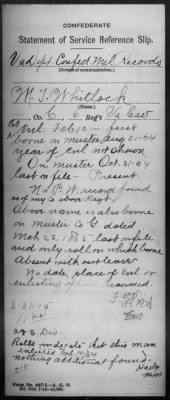 CONFEDERATE
Statement of Service Reference Slip.
Va Dept. Confed Mil Records
(Source of communication.)
W. T. Whitlock
(Name.)
, Co. C, 6 Reg't Va Cav
Enl. Feb 10 – first
borne on muster Aug 31-64
year of enl not shown
On Muster Oct. 31-64
last on file – Present
No P. W. record found
as of any Co above Regt.
Above name is also borne
on Muster Co G dated
Mch 22, 1865 last on file
and only roll on which borne
Absent without leave
No date, place of enl or
enlisting officer recorded.
3-31-15
Rolls indicate that this man
enlisted Feb. 10/64
nothing additional found.
Form No. 447-2—A. G. O.